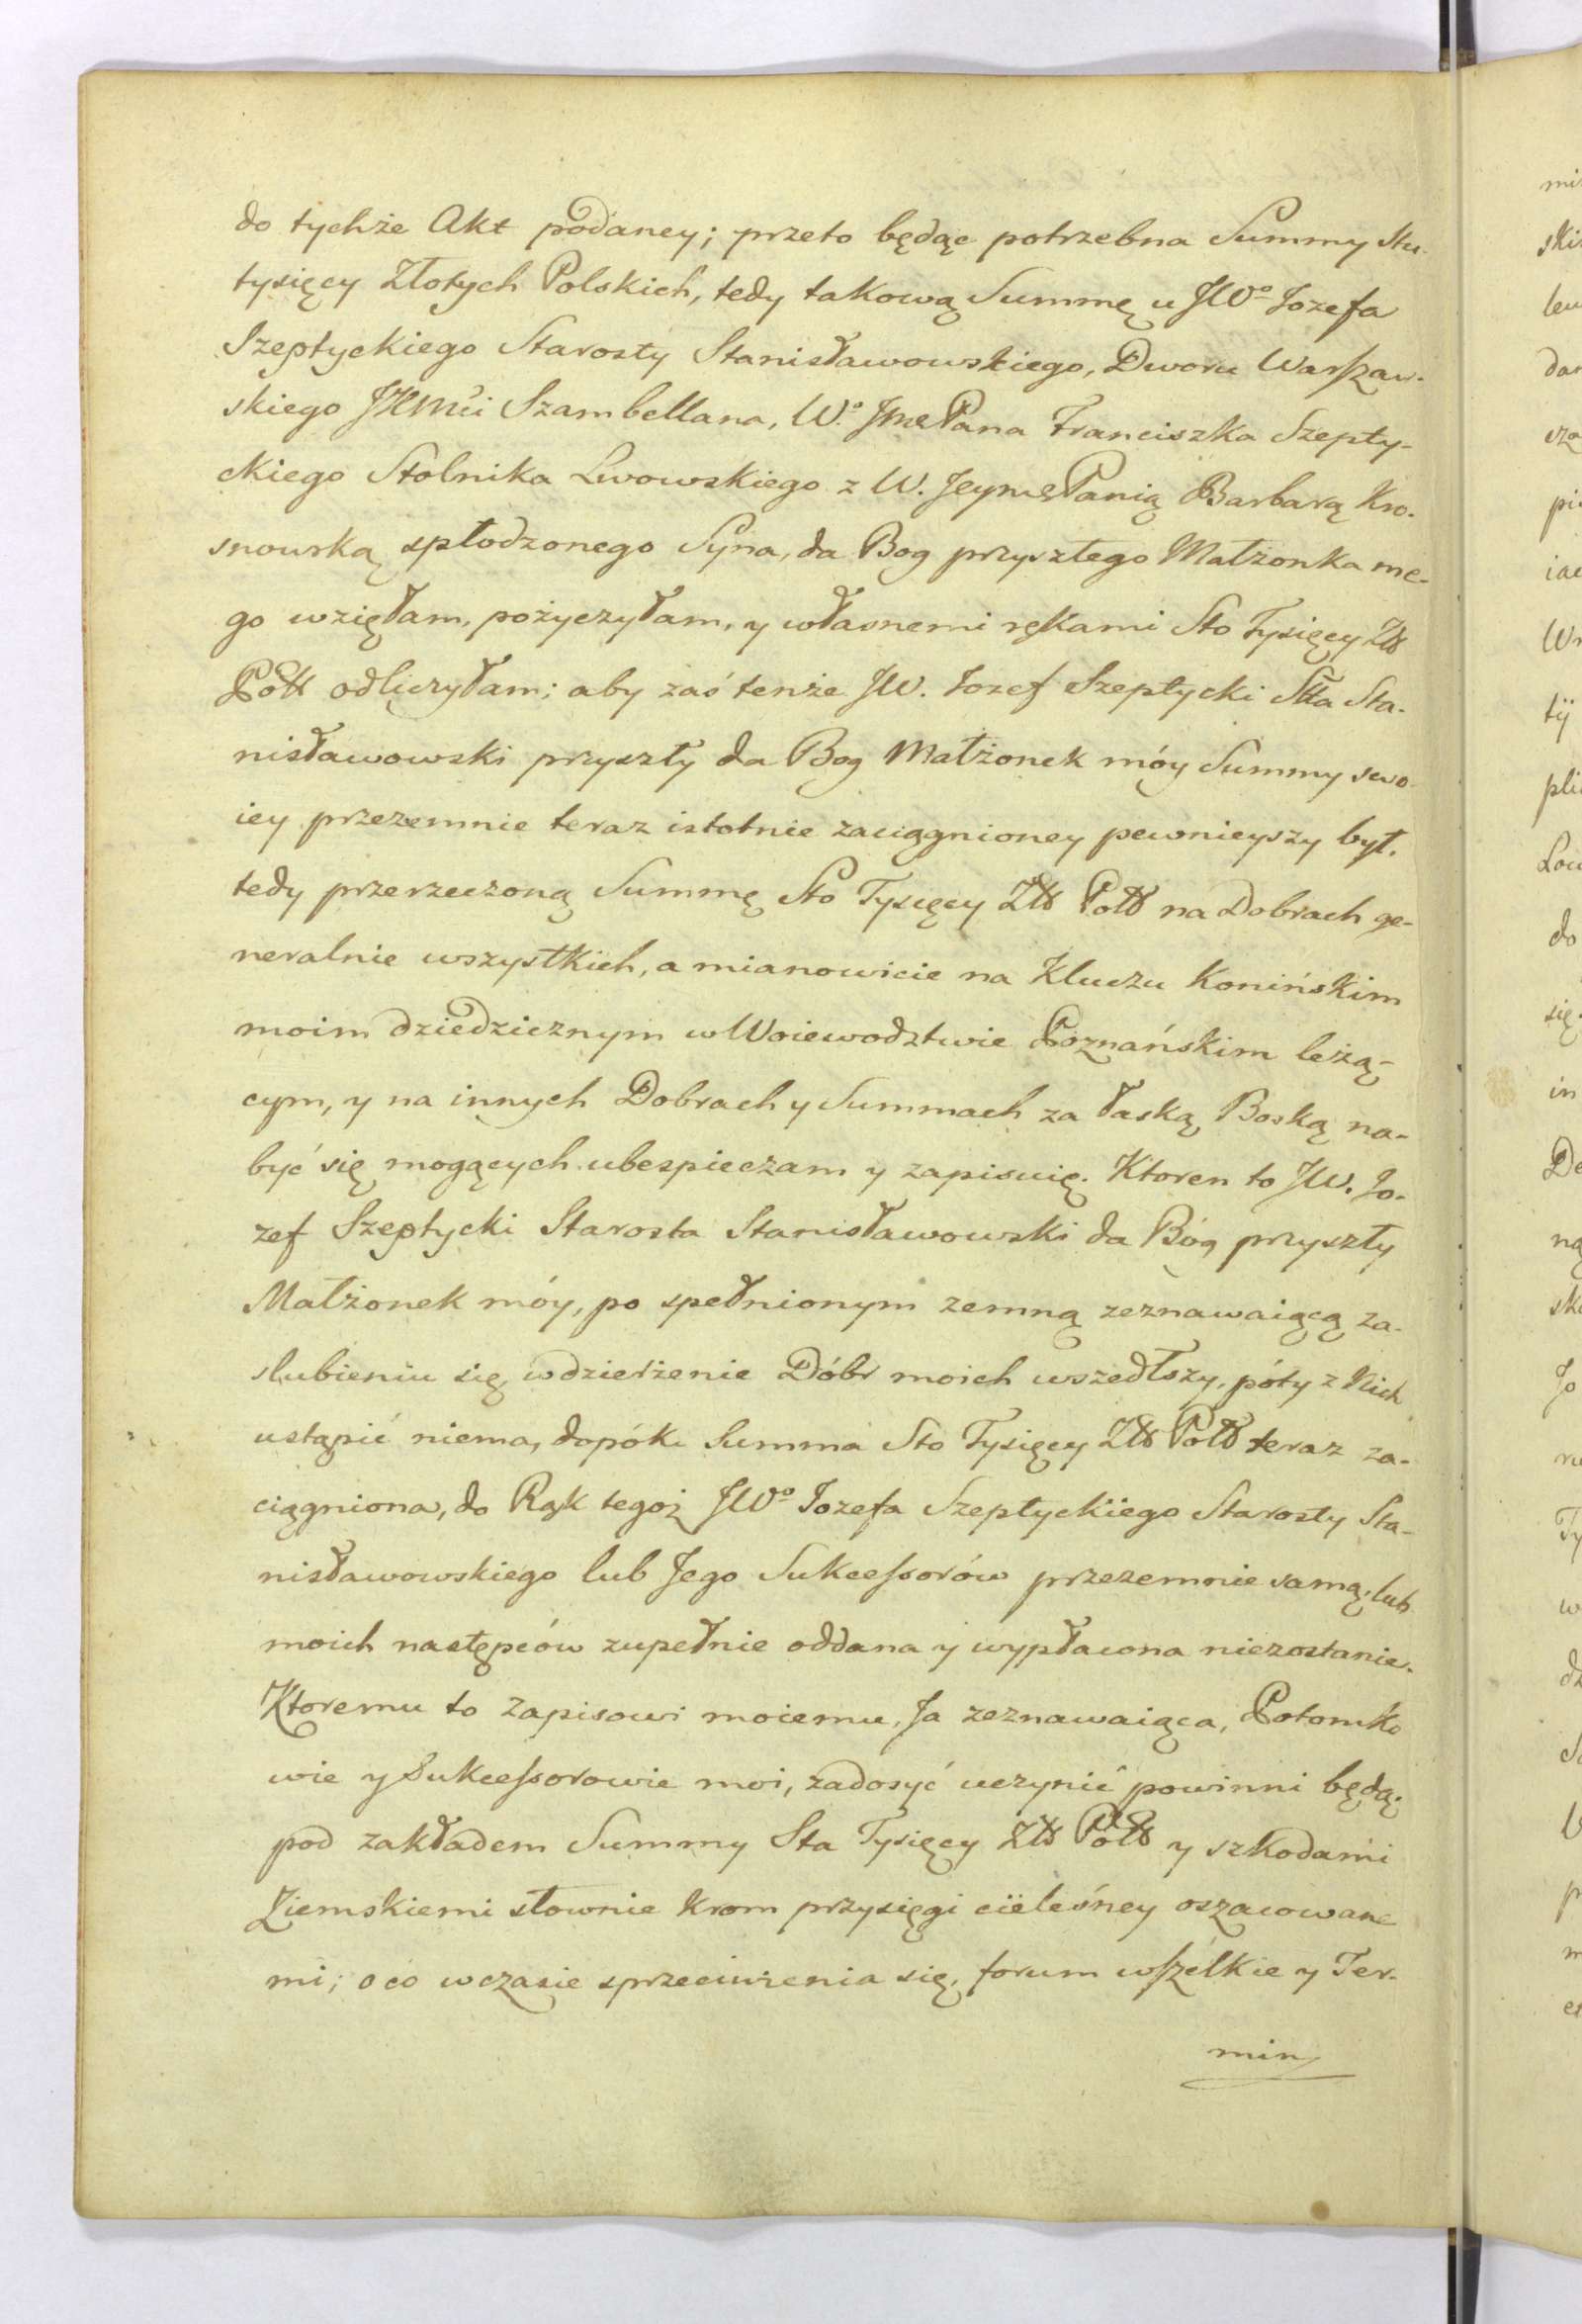 do tychże Akt podaney; przeto będąc potrzebna Summy Stu
tysięcy Złotych Polskich, tedy takową Summę u JWo Jozefa
Szeptyckiego Starosty Stanisławowskiego, Dworu Warszaw-
skiego JKMci Szambellana, W.o JmcPana Franciszka Szepty-
ckiego Stolnika Lwowskiego z W. JeymcPanią Barbarą Kro-
snowską spłodzonego Syna, da Bog przyszłego Małżonka me-
go wzięłam, pożyczyłam, y własnemi rękami Sto Tysięcy Złł
Polł odliczyłam; aby zaś tenże JW. Jozef Szeptycki Stta Sta-
nisławowski przyszły da Bog Małżonek móy Summy swo-
iey przezemnie teraz istotnie zaciągnioney pewnieyszy był,
tedy przerzeczoną Summę Sto Tysięcy Złł Polł na Dobrach ge-
neralnie wszystkich, a mianowicie na Kluczu Konińskim
moim dziedzicznym w Woiewodztwie Poznańskim leżą-
cym, y na innych Dobrach y Summach za łaską Boską na-
być się mogących ubespieczam y zapisuię. Ktoren to JW. Jo-
zef Szeptycki Starosta Stanisławowski da Bóg przyszły
Małżonek móy, po spełnionym zemną zeznawaiącą za-
slubieniu się, wdzierżenie Dóbr moich wszedłszy, póty z Nich
ustąpić niema, dopóki Summa Sto Tysięcy Złł Polł teraz za-
ciągniona, do Rąk tegoż JWo Jozefa Szeptyckiego Starosty Sta-
nisławowskiego lub Jego Sukcessorów przezemnie samą, lub
moich następców zupełnie oddana y wypłacona niezostanie.
Ktoremu to zapisowi moiemu, Ja zeznawaiąca, Potomko
wie y Sukcessorowie moi, zadosyć uczynić powinni będą;
pod zakładem Summy Sta Tysięcy Złł Polł y szkodami
Ziemskiemi słownie krom przysięgi cieleśney oszacowane
mi; o co w czasie sprzeciwienia się, forum wszelkie y Ter-
min